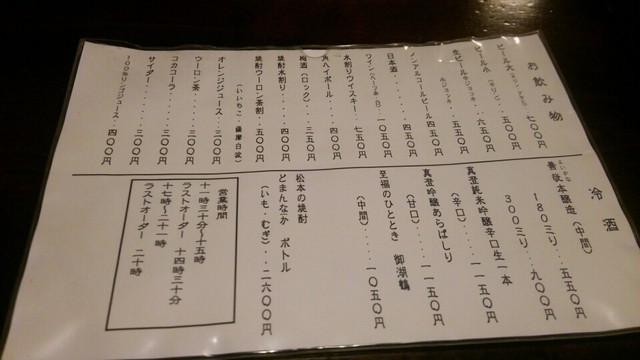 お飲み物
ビール大 七〇〇円
ビール小 五〇〇円
生ビール 六五〇円
五五〇円
ノンアルコールビール 四五〇円
日本酒 四五〇円
ワイン 一〇五〇円
水割りウイスキー 七五〇円
角ハイボール 四〇〇円
梅酒（ロック） 三五〇円
焼酎水割り 四〇〇円
焼酎ウーロン茶割 五〇〇円
（いいちこ・薩摩白波）
オレンジジュース 二〇〇円
ウーロン茶 二〇〇円
コカコーラ 二〇〇円
サイダー 二〇〇円
100%リンゴジュース 四〇〇円
冷酒
善哉本醸造（中間）
180ミリ 五五〇円
300ミリ 九〇〇円
真澄純米吟醸辛口生一本
（辛口） 一一五〇円
真澄吟醸あらばしり
（甘口） 一一五〇円
至福のひととき 御湖鶴
（中間） 一〇五〇円
松本の焼酎
とまんなか ボトル
（いも・むぎ） 二六〇〇円
営業時間
十一時三十分〜十五時
ラストオーダー 十四時三十分
十七時〜二十一時
ラストオーダー 二十時